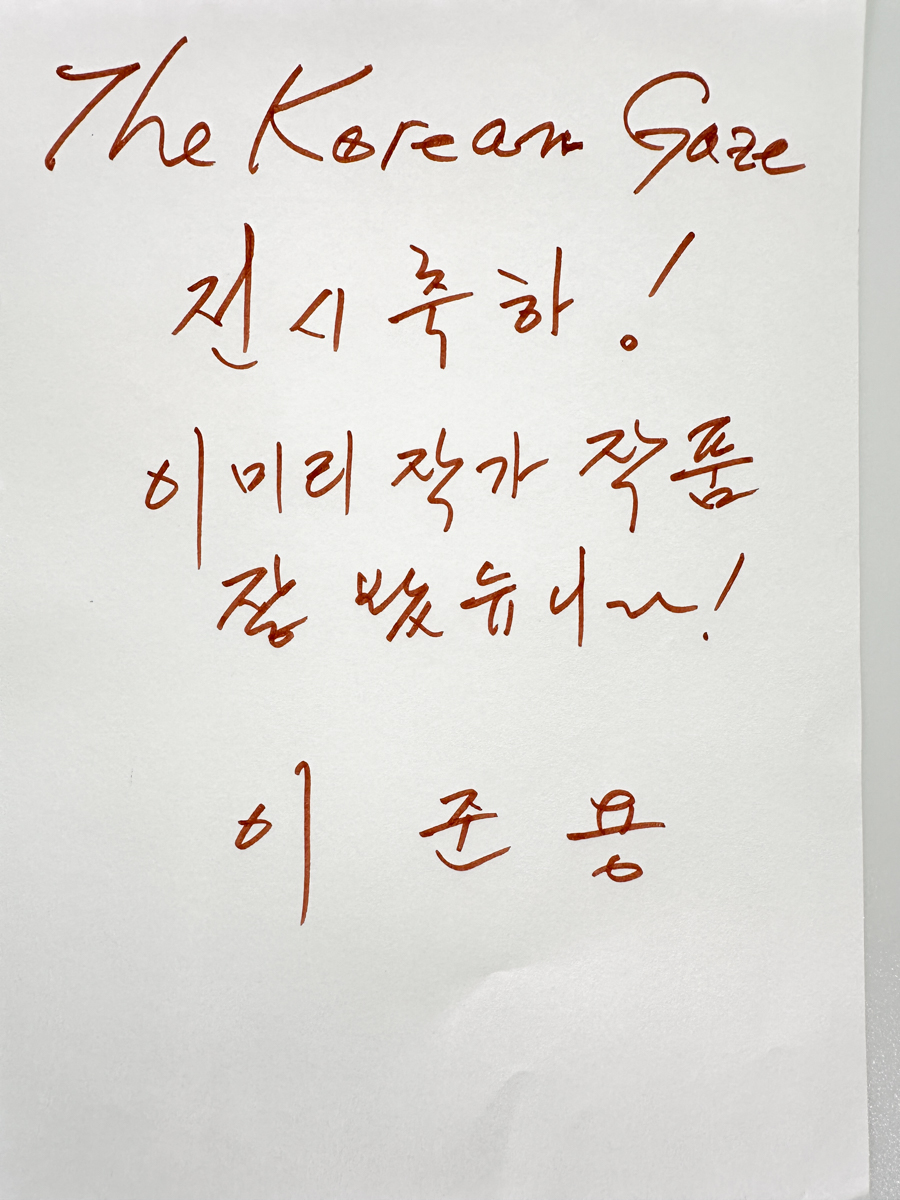 The Korean Gaze
전시 축하!
이미리 작가 작품
잘 봤습니다!
이준용